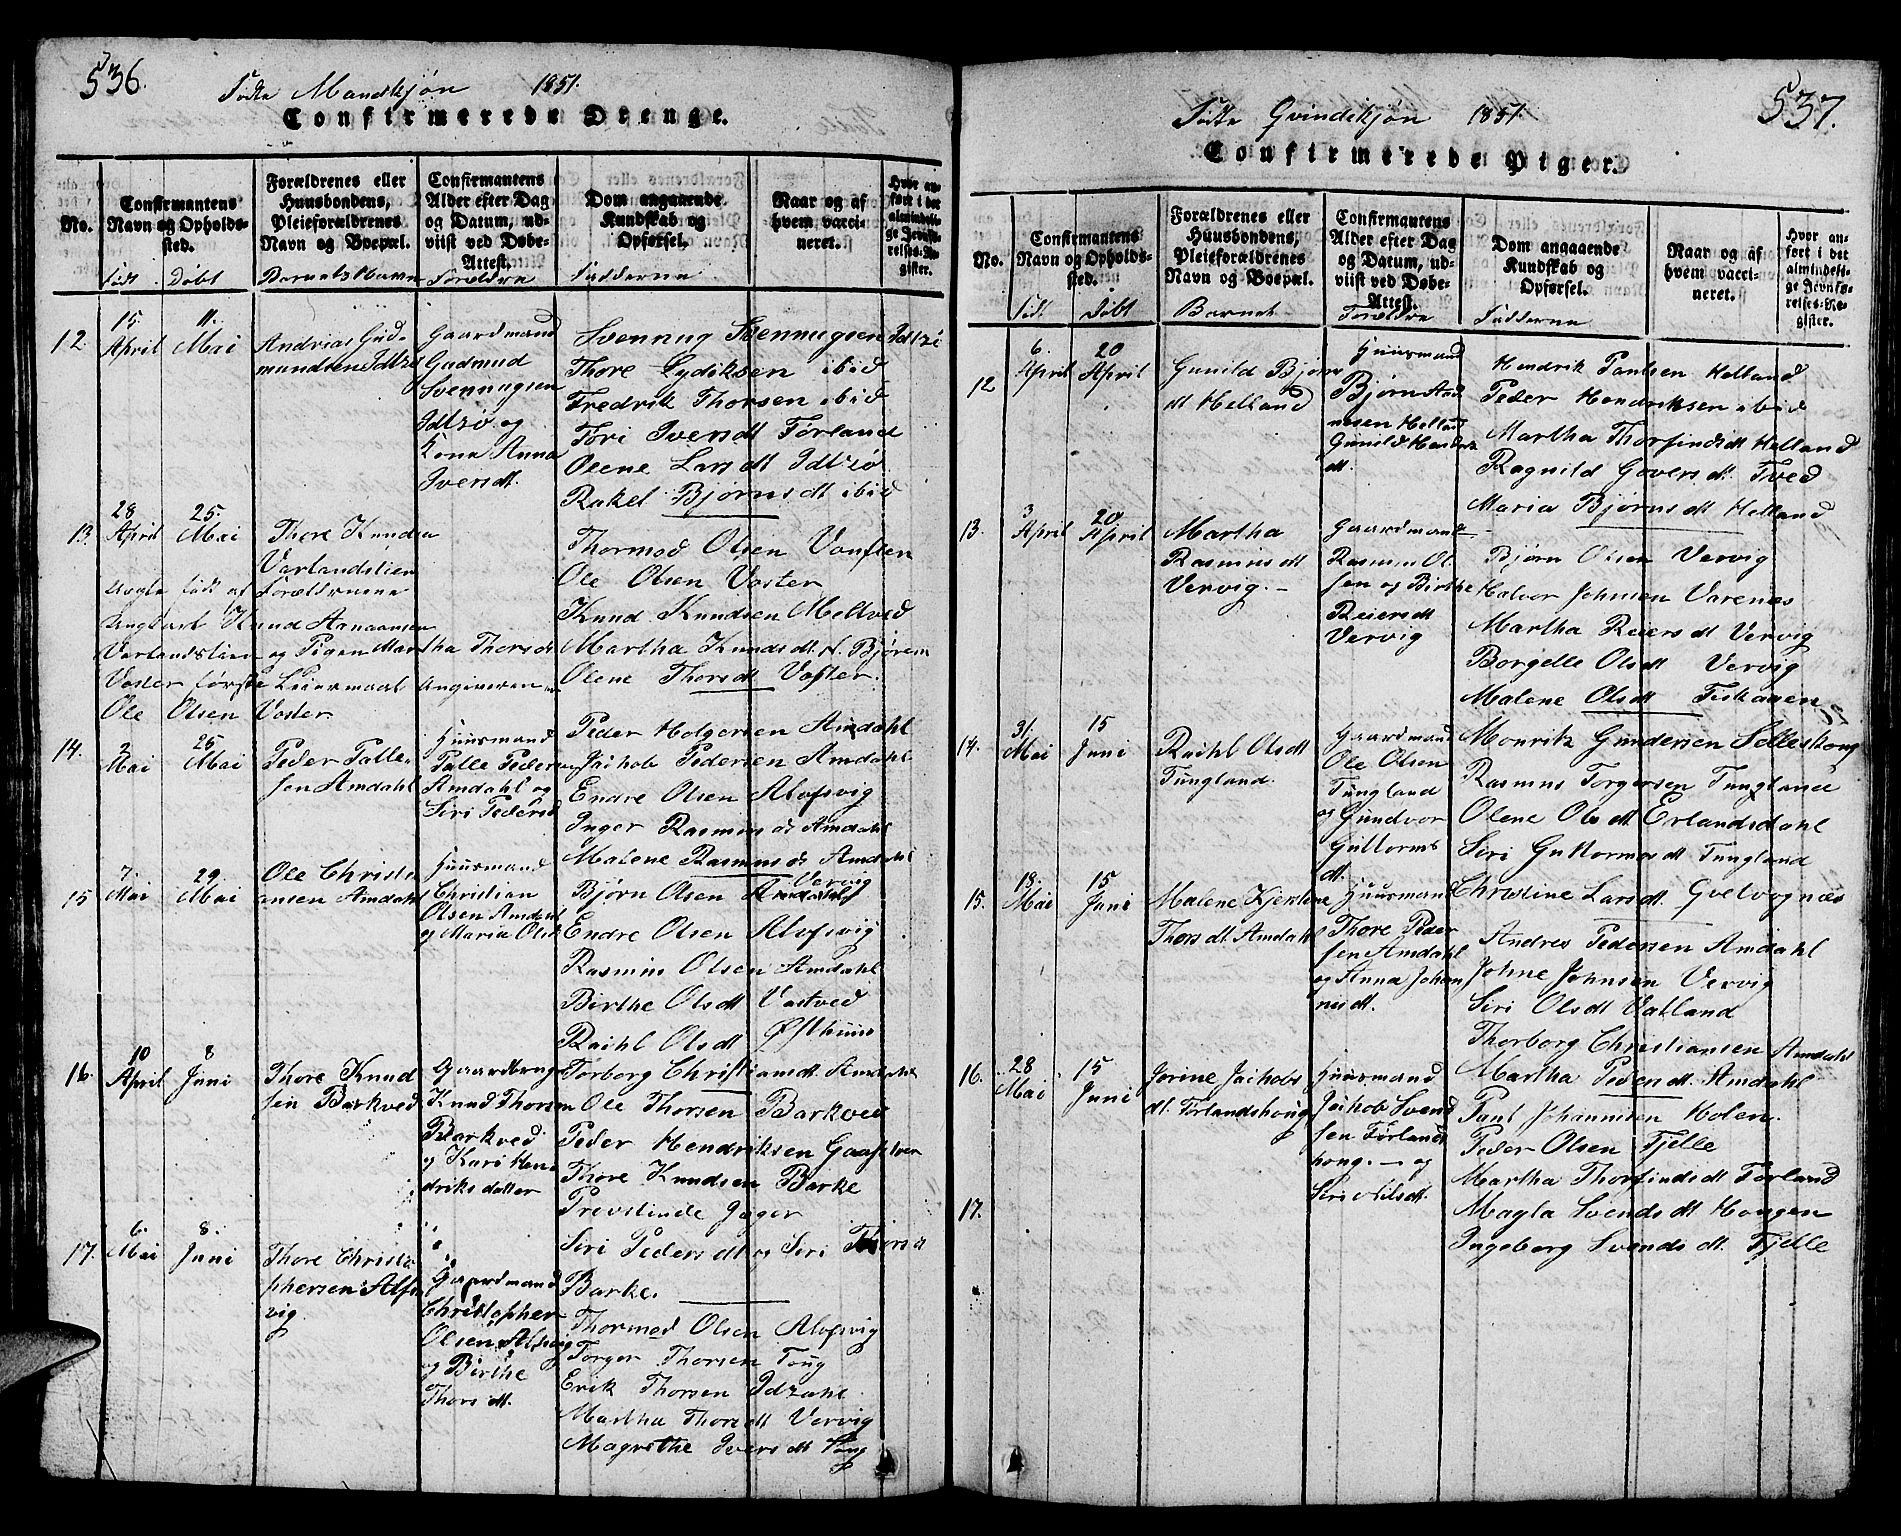 536.
Fødte Mandkjøn 1851.
Confirmerede Drenge.
No.
Confirmantens Navn og Opholdssted.
Forældrenes eller Huusbondens, Pleieforældrenes Navn og Boepæl.
Confirmantens Alder efter Dag og Datum, udviist ved Døbe-Attest.
Dom angaaende Kundskab og Opførsel.
Naar og af hvem vaccineret.
Hvor anført i det almindelige Jevnførelses-Register.
Født Døbt Barnets Navn Forældre Fadderne
12. 15. April 11. Mai
Andreas Gud-
mundsen Idtzø
Gaardmand
Gudmund
Svennugsen
Idtzø og
Kone Anna
Iversdt.
Svennug Svennugsen Idtzø
Thore Lydiksen ibid
Fredrik Thorsen ibid
Tori Iversdt Førland
Olene Larsdt Idtzø
Rakel Bjørnsdt ibid
13. 28 April 25. Mai
Thore Knudsen
Varlandslien
uægte født af Forældrene
Ungkarl Knud Aanaansen
Varlandslien og Pigen Martha Thorsdt
Voster første Leiermaal Angiveren er
Ole Olsen Voster
Thormod Olsen
Ole Olsen Voster
Knud Knudsen Meltved
Martha Knudsdt
Olene Thorsdt Voster.
14. 2 Mai 25 Mai
Peder Palle-
sen Amdahl
Huusmand
Palle Pedersen
Amdahl og
Siri Pedersd
Peder Holgersen Amdahl
Jachob Pedersen Amdahl
Endre Olsen Alvsvig
Inger Rasmusdt Amdahl
Malene Rasmusdt Amdahl
15 7. Mai 29. Mai
Ole Christi-
ansen Amdahl
Huusmand
Christian
Olsen Amdahl
og Maria Olsd
Bjørn Olsen Vervig
Endre Olsen Alvsvig
Rasmus Olsen Amdahl
Birthe Olsdt Vastved
Rachl Olsdt Østhuus
Torborg Christiansdt. Amdahl
16. 10 April 8 Juni
Thore Knud
sen Barkved
Gaardbrug
Knud Thorsen
Barkved
og Kari Hen-
driksdatter
Ole Thorsen Barkved
Peder Hendriksen
Thore Knudsen Barke
Provstinde Jæger
Siri Pedersdt og Siri Thorsd
Barke.
17. 6. Mai 8. Juni
Thore Christo
phersen Alfs
vig
Gaardmand
Christopher
Olsen Alfsvig
og Birthe
Thorsdt.
Thormod Olsen Alvsvig
Torger Thorsen Toug
Erik Thorsen Idzahl
Martha Thorsdt Vervig
Magrethe Iversdt Toug
537.
Fødte Qvindekjøn 1851.
Confirmerede Piger.
No.
Confirmantens Navn og Opholdssted.
Forældrenes eller Huusbondens, Pleieforældrenes Navn og Boepæl.
Confirmantens Alder efter Dag og Datum, udviist ved Døbe-Attest.
Dom angaaende Kundskab og Opførsel.
Naar og af hvem vaccineret.
Hvor anført i det almindelige Jevnførelses-Register.
Født Døbt Barnet Forældre Fadderne
12 6. April 20 April
Gunild Bjørns
dt Helland
Huusmand
Bjørn Aad
nesen Helland
Gunild Hendriks
dt.
Hendrik Paulsen Helland
Peder Hendriksen ibid
Martha Thorfindsdt Helland
Ragnild Goversdt Tved
Maria Bjørnsdt Helland
13. 3 April 20 April
Martha
Rasmusdt
Vervig.
Gaardmand
Rasmus Ol-
sen og Birthe
Reiersdt
Vervig
Bjørn Olsen Vervig
Halvor Johnsen Varenes
Martha Reiersdt Vervig
Borgelle Olsdt Vervig
Malene Olsdt Fiskaaen
14. 31. Mai 15 Juni
Rachl Olsdt
Tungland.
Gaardmand
Ole Olsen
Tungland
og Gundvor
Guttorms
dt.
Monrik Gundersen Selleskoug
Rasmus Torgersen Tungland
Olene Olsdt Erlandsdahl
Siri Guttormsdt Tungland
Christine Larsdt.
15. 18. Mai 15 Juni
Malene Kjerstine
Thorsdt. Amdahl
Huusmand
Thore Peder
sen Amdahl
og Anna Johan
nesdt.
Andres Pedersen Amdahl
Johne Johnsen Vervig
Siri Olsdt Vatland
Thorborg Christiansen Amdahl
Martha Pedersdt. Amdahl
16. 28 Mai 15 Juni
Jorine Jachobs
dt. Førlandshoug
Huusmand
Jachob Svend
sen Førlands
houg. og
Siri Nilsdt.
Paul Johannesen Holen.
Peder Olsen Fjelle
Martha Thorfindsdt Førland
Magla Svendsdt Hougen
Ingeborg Svendsdt. Fjelle
17.